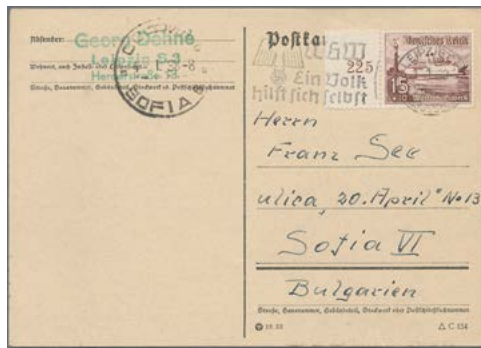 Absender:
Georg Dehne
Leipzig S 3
Wohnort, auch Zustell- oder
Straße, Hausnummer, Gebäudeteil, Stockwerk od. Postschließfachnummer
SOFIA
Postka
WHW
Ein Volk
hilft sich selbst
225
Deutsches Reich
15
Herrn
Franz See
ulica „20. April“ No 13
Sofia VI
Bulgarien
Straße, Hausnummer, Gebäudeteil, Stockwerk oder Postschließfachnummer
C 154